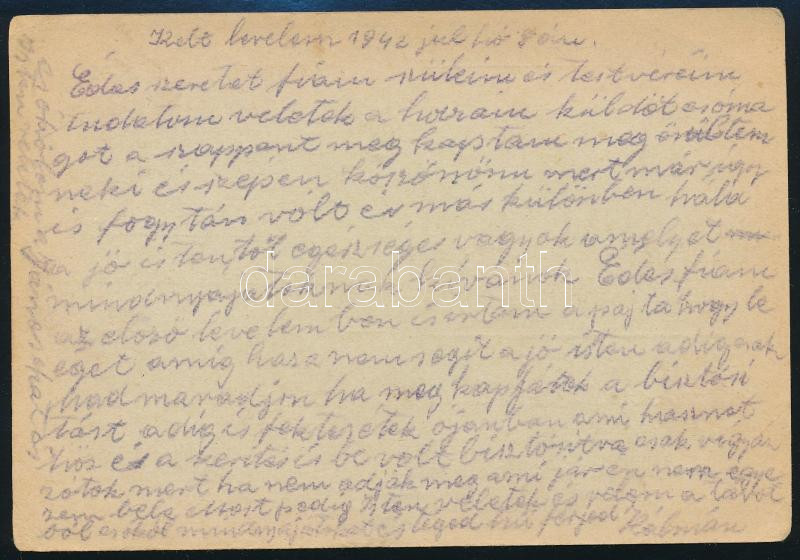 Kelt levelem 1942 jul hó 8 án.
Édes szeretet fiam szüleim és testvéreim
tudatom veletek a hozzám küldöt csoma
got a szappant meg kaptam meg örültem
neki és szépen köszönöm mert már úgy
is fogytán volt és más különben hála
a jó istentöl egészséges vagyok amelyet
mindnyajatoknak kívánok Édes fiam
az elözö levelem ben is irtam a pajta hogy le
éget amig haza nem segit a jó isten adig csak
had maradjon ha meg kapjátok a biztosi
tást adig is fektetétek ojanban ami hasznot
hoz és a kerítés is be volt bisztósitva csak vigyáz
zátok mert ha nem adják meg ami jár en nem egye
zem bele Most pedig Isten veletek és velem a távol
ból csokol mindnyájatokat és téged hü férjed Kálmán
darabanth